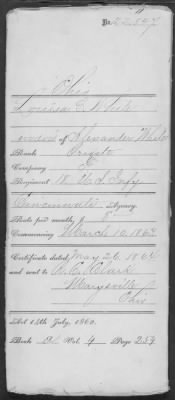 No 22,847
Ohio
Louisa C. White
widow of Alexander White
Rank Private
Company E
Regiment 18" U S Infy
Cincinnati Agency
Rate per month, $ 8
Commencing March 10, 1863
Certificate dated, May 26, 1864
and sent to
Marysville
Ohio
Act 14th July, 1862.
Book Vol. 4 Page 259